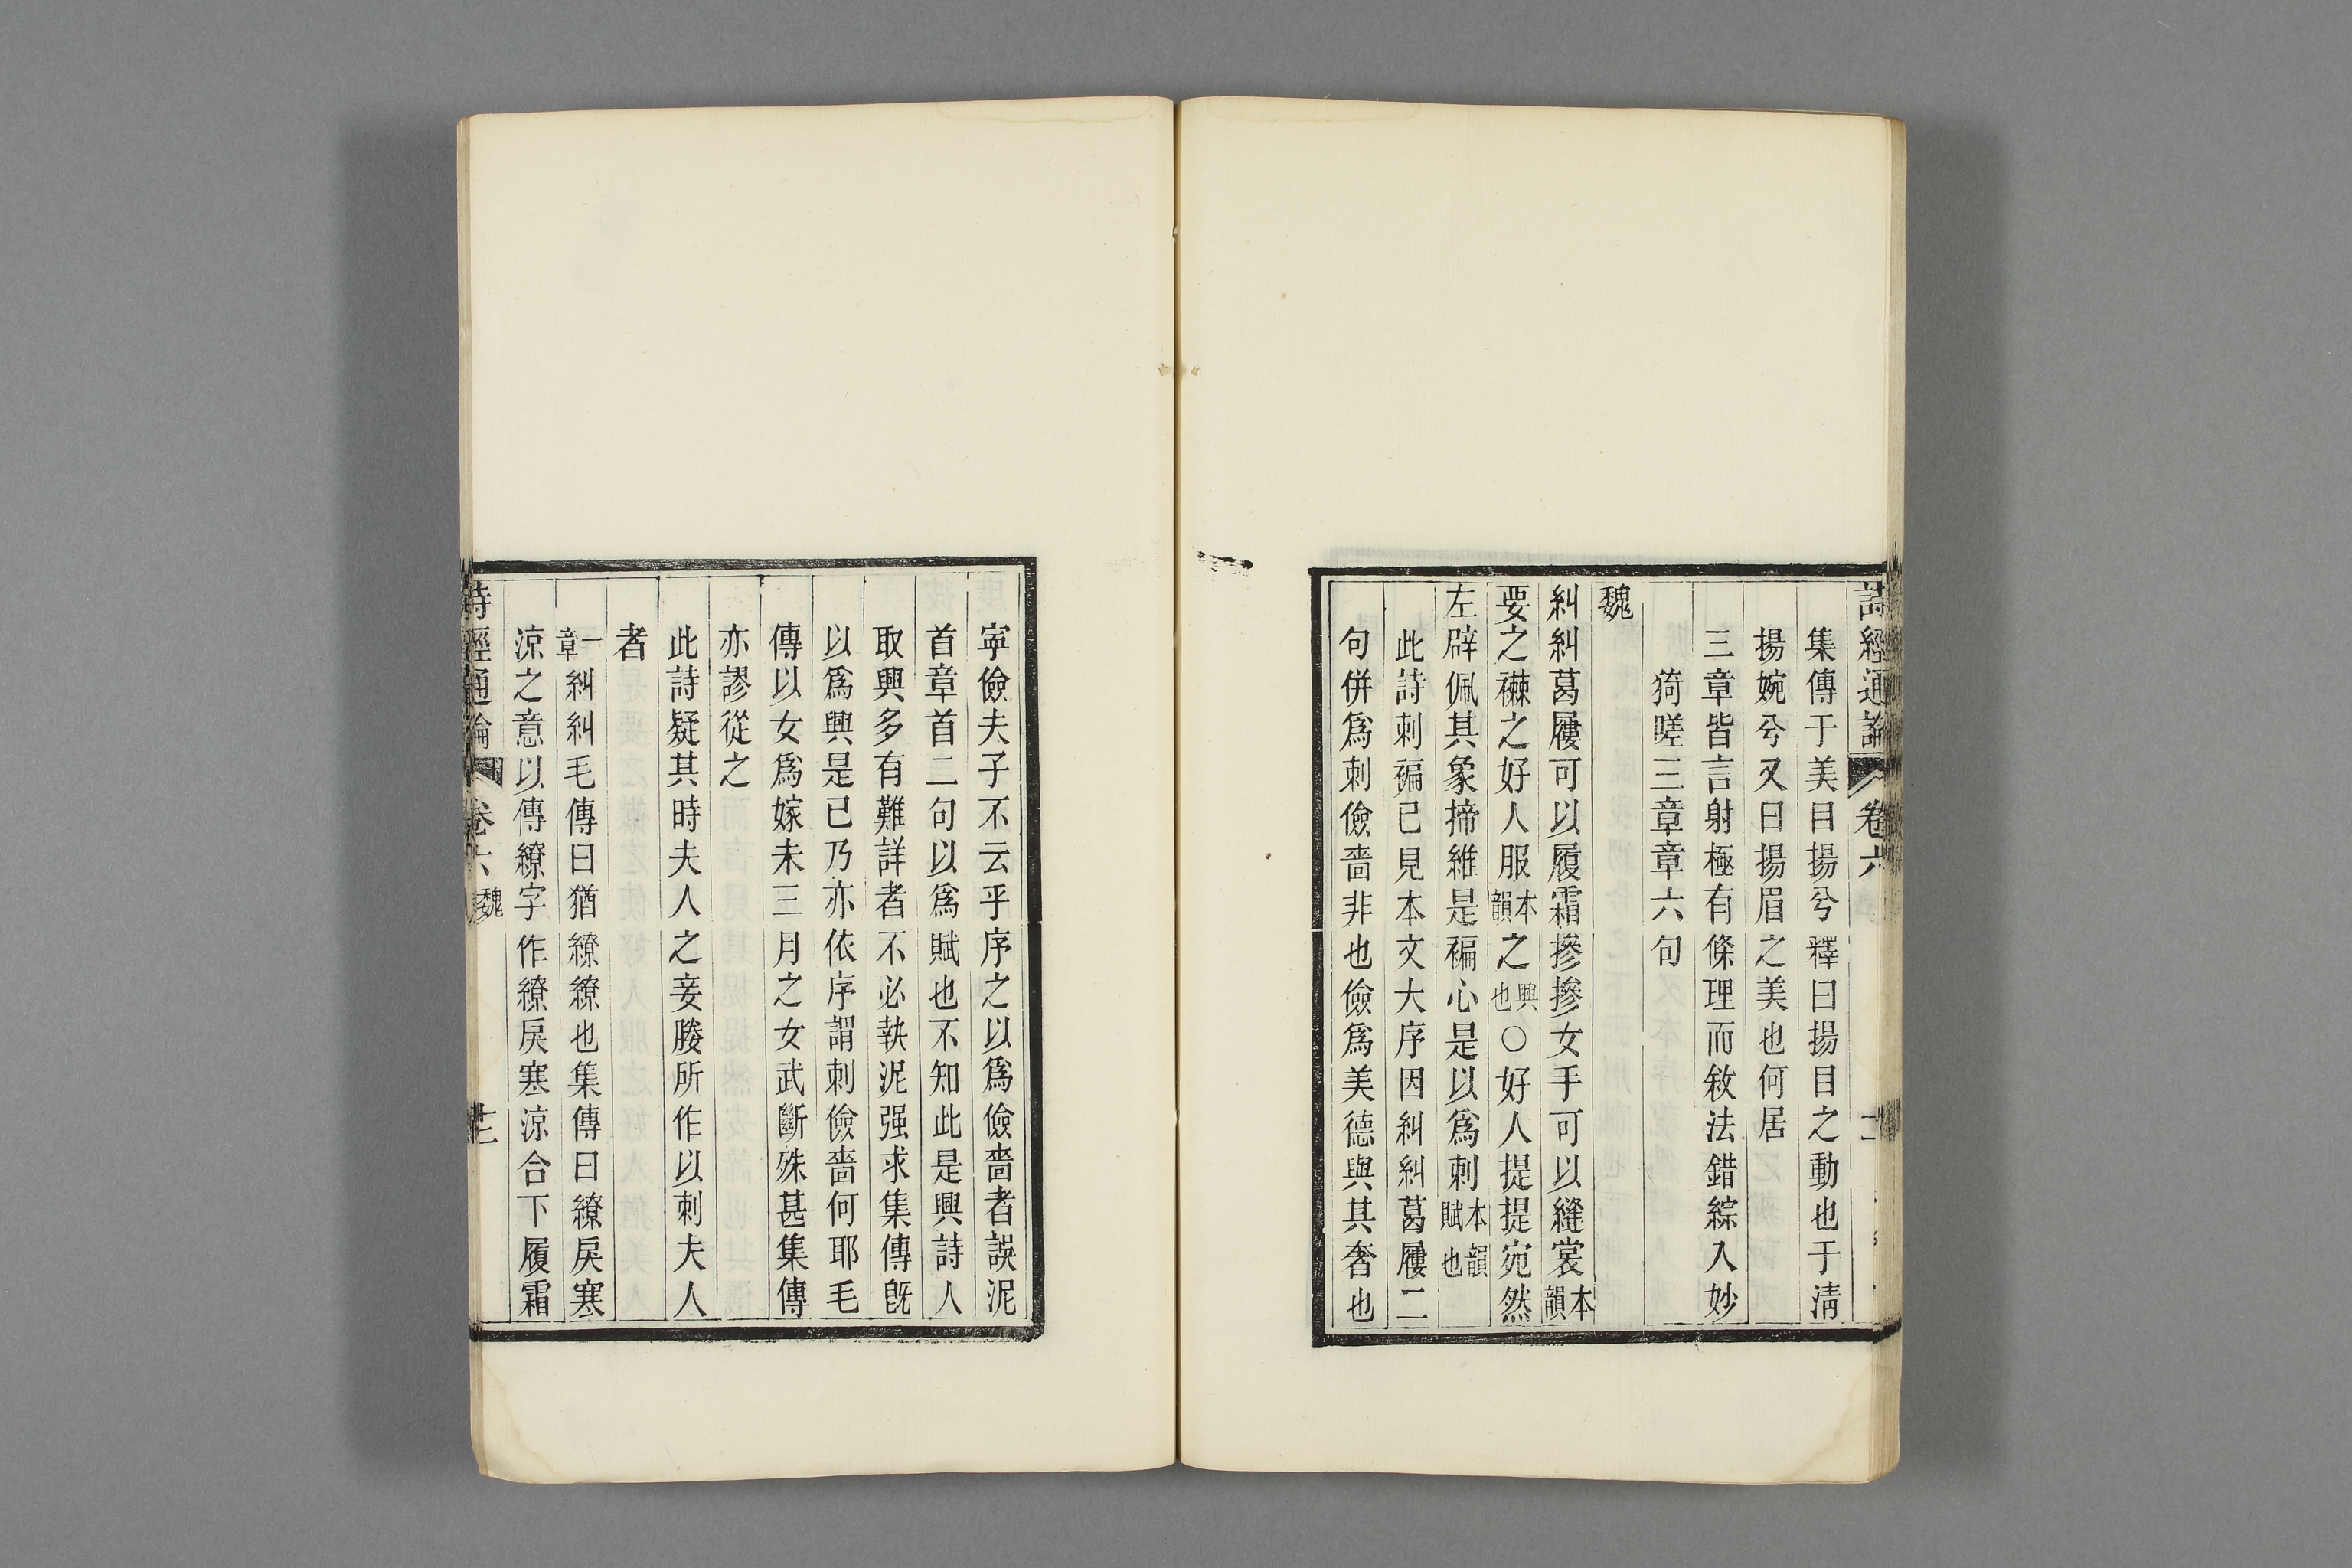 詩經通論 卷六
集傳于美目揚兮釋曰揚目之動也于淸
揚婉兮又曰揚眉之美也何居
三章皆言射極有條理而敘法錯綜入妙
猗嗟三章章六句
魏
糾糾葛屨可以履霜摻摻女手可以縫裳本韻
要之襋之好人服本韻之興也○好人提提宛然
左辟佩其象揥維是褊心是以爲刺本韻賦也
此詩刺褊已見本文大序因糾糾葛屨二
句併爲刺儉嗇非也儉爲美德與其奢也
寧儉夫子不云乎序之以爲儉嗇者誤泥
首章首二句以爲賦也不知此是興詩人
取興多有難詳者不必執泥强求集傳旣
以爲興是已乃亦依序謂刺儉嗇何耶毛
傳以女爲嫁未三月之女武斷殊甚集傳
亦謬從之
此詩疑其時夫人之妾媵所作以刺夫人
者
一章糾糾毛傳曰猶繚繚也集傳曰繚戾寒
涼之意以傳繚字作繚戾寒涼合下履霜
詩經通論 卷六 魏 十二